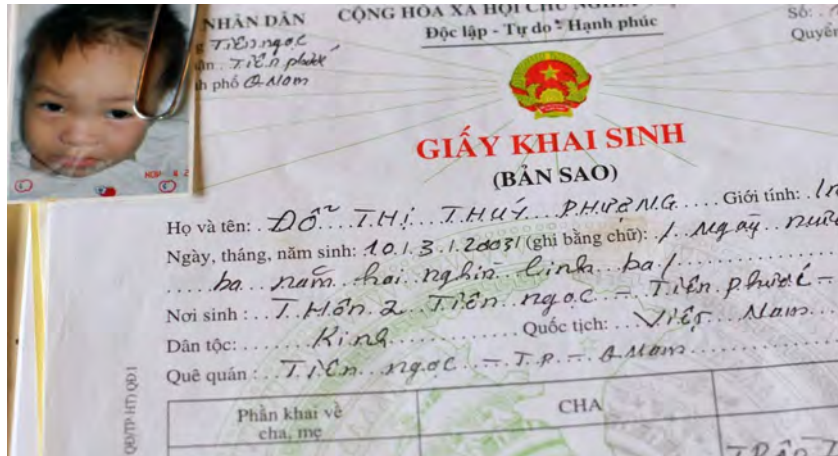 NHÂN DÂN
Tiên ngọc
Tiên phước
phố Q Nam
CỘNG HÒA XÃ HỘI CHỦ
Độc lập - Tự do - Hạnh phúc
Số:
Quyển
GIẤY KHAI SINH
(BẢN SAO)
Họ và tên: ĐỖ THỊ THUÝ PHƯỢNG Giới tính:
Ngày, tháng, năm sinh: 10 / 3 / 2003 / (ghi bằng chữ): / Ngày mười
ba năm hai nghìn linh ba /
Nơi sinh : Thôn 2 Tiên ngọc - Tiên phước -
Dân tộc: Kinh Quốc tịch: Việt Nam
Quê quán : Tiên ngọc - T.P. - Q Nam
Phần khai về
cha, mẹ
CHA